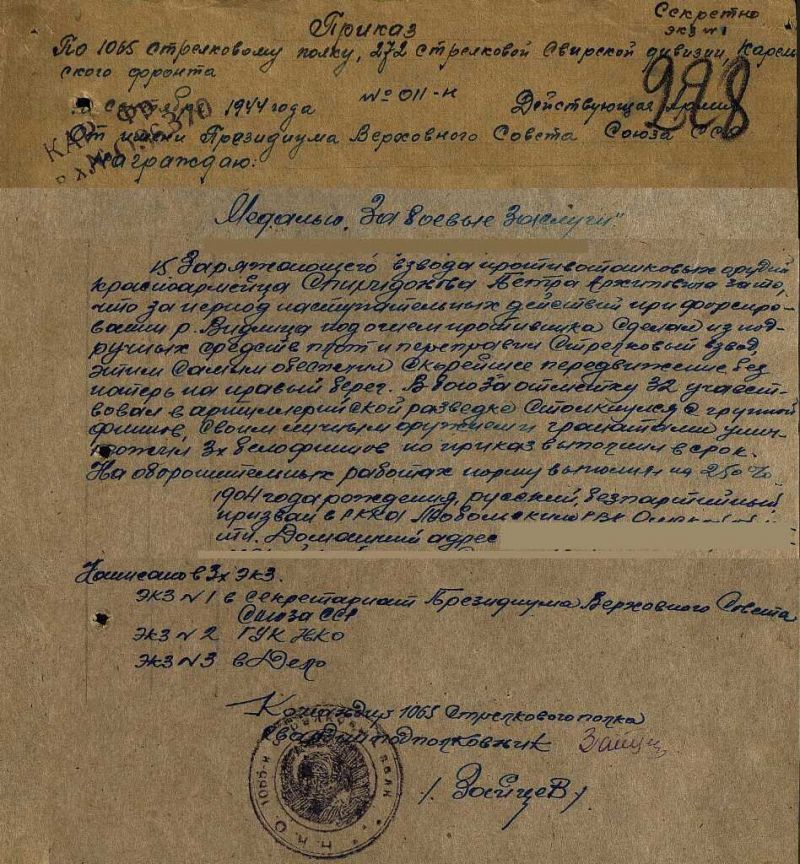 Секретно
экз №1
Приказ
По 1065 стрелковому полку, 272 стрелковой Свирской дивизии, Карель-
ского фронта
сентября 1944 года № 011-н Действующая армия
228
От имени Президиума Верховного Совета Союза ССР
награждаю:
Медалью "За боевые заслуги"
15. Заряжающего взвода противотанковых орудий
красноармейца Спиридонова Петра Архиповича за то,
что за период наступательных действий при форсиро-
вании р. Видлица под огнем противника сделал из под-
ручных средств плот и переправил стрелковый взвод,
этим самым обеспечил скорейшее передвижение без
потерь на правый берег. В бою за отметку 32 участ-
вовал в артиллерийской разведке столкнулся с группой
финнов, своим личным оружием и гранатами унич-
тожил 3х белофиннов но приказ выполнил в срок.
На оборонительных работах норму выполнял на 250%
1904 года рождения, русский, безпартийный
призван в РККА РВК
сти. Домашний адрес
Написано в 3х экз.
экз №1 в секретариат Президиума Верховного Совета
Союза ССР
экз №2 ГУК НКО
экз №3 в дело
Командир 1065 Стрелкового полка
гвардии подполковник Зайцев
/Зайцев/
1065-й стрелковый полк
Н.К.О